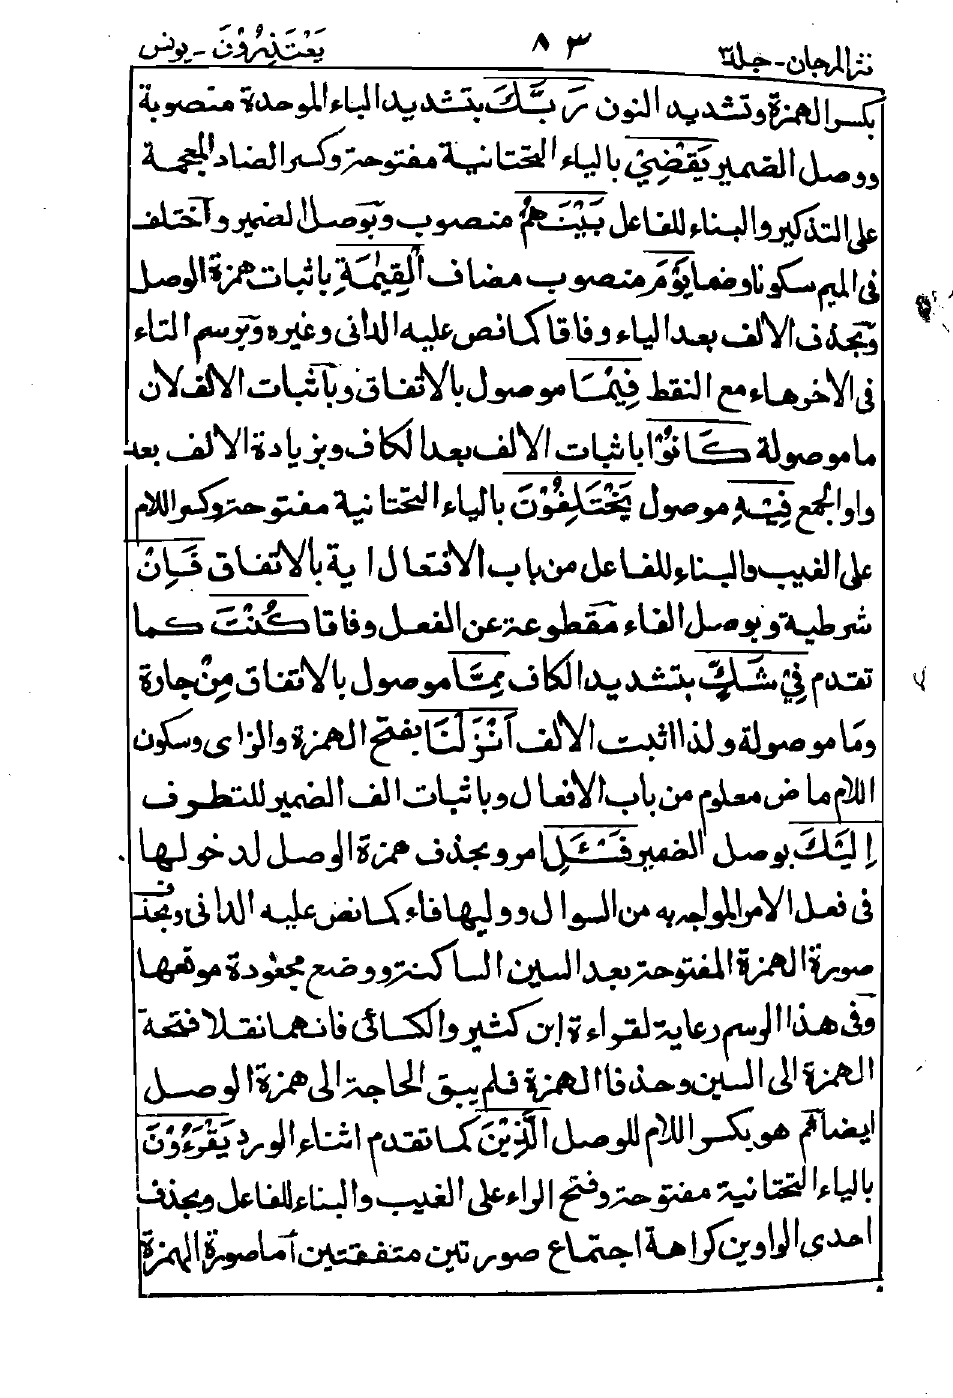 نثر المرجان - جلد٣ ٨٣ يَعْتَذِرُوْنَ - يونس
بكسر الهمزة وتشديد النون رَبَّكَ بتشديد الباء الموحدة منصوبة
ووصل الضمير يَقْضِيْ بالياء التحتانية مفتوحة وكسر الضاد المعجمة
على التذكير والبناء للفاعل بَيْنَهُمْ منصوب وبوصل الضمير وآختلف
فى الميم سكونا وضما يَوْمَ منصوب مضاف الْقِيٰمَةِ باثبات همزة الوصل
وبحذف الالف بعد الياء وفاقا كما نص عليه الدانى وغيره وبرسم التاء
فى الاخر هاء مع النقط فِيْمَا موصول بالاتفاق وبآثبات الالف لان
ما موصولة كَانُوْا باثبات الالف بعد الكاف وبزيادة الالف بعد
واو الجمع فِيْهِ موصول يَخْتَلِفُوْنَ بالياء التحتانية مفتوحة وكسر اللام
على الغيب والبناء للفاعل من باب الافتعال اية بالاتفاق فَاِنْ
شرطية وبوصل الفاء مقطوعة عن الفعل وفاقا كُنْتَ كما
تقدم فِيْ شَكٍّ بتشديد الكاف مِمَّا موصول بالاتفاق مِنْ جارة
وما موصولة ولذا اثبت الالف اَنْزَلْنَا بفتح الهمزة والزاى وسكون
اللام ماض معلوم من باب الافعال وباثبات الف الضمير للتطرف
اِلَيْكَ بوصل الضمير فَسْـَٔلِ امر وبحذف همزة الوصل لدخولها
فى فعل الامر المواجه به من السوال ووليها فاء كما نص عليه الدانى وبحذف
صورة الهمزة المفتوحة بعد السين الساكنة ووضع مجعودة موقعها
وفى هذا الرسم رعاية لقراءة ابن كثير والكسائى فانهما نقلا فتحة
الهمزة الى السين وحذفا الهمزة فلم يبق الحاجة الى همزة الوصل
ايضا ثم هو بكسر اللام للوصل الَّذِيْنَ كما تقدم اثناء الورد يَقْرَءُوْنَ
بالياء التحتانية مفتوحة وفتح الراء على الغيب والبناء للفاعل وبحذف
احدى الواوين كراهة اجتماع صورتين متفقتين آما صورة الهمزة